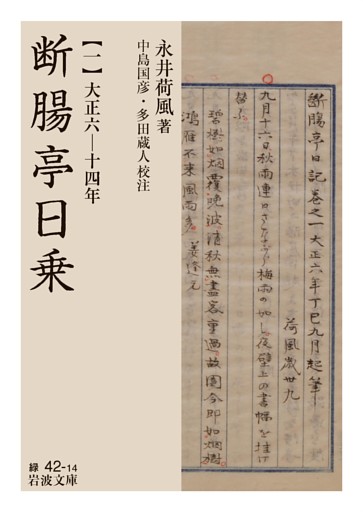 永井荷風著
中島国彦・多田蔵人校注
断腸亭日乗
【一】大正六―十四年
緑 42-14
岩波文庫
断膓亭日記巻之一大正六年丁巳九月起筆
荷風歳卅九
九月十六日秋雨連日さながら梅雨の如し夜壁上の書幅を挂け
替ふ
碧樹如烟覆晩波清秋無盡客重過故園今即如烟樹
鴻雁不来風雨多 姜逢元